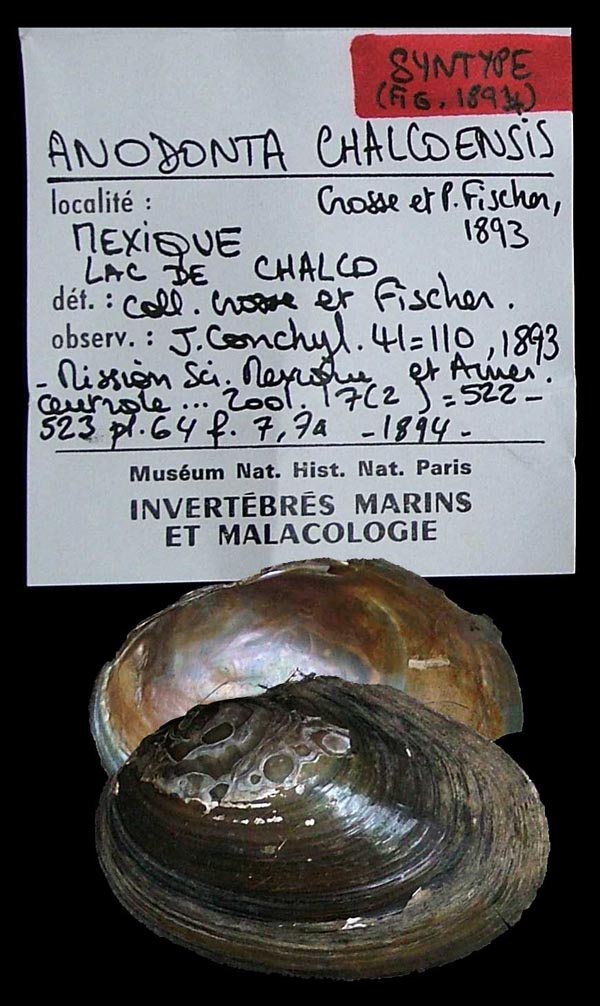 SYNTYPE
(FIG. 1894)
ANODONTA CHALCOENSIS
localité : Crosse et P. Fischer,
1893
MEXIQUE
LAC DE CHALCO
dét. : Coll. Crosse et Fischer.
observ. : J. Conchyl. 41=110, 1893
- Mission Sci. Mexique et Amer.
Centrale ... Zool. 7(2) = 522-
523 pl. 64 f. 7,7a - 1894 -
Muséum Nat. Hist. Nat. Paris
INVERTÉBRÉS MARINS
ET MALACOLOGIE